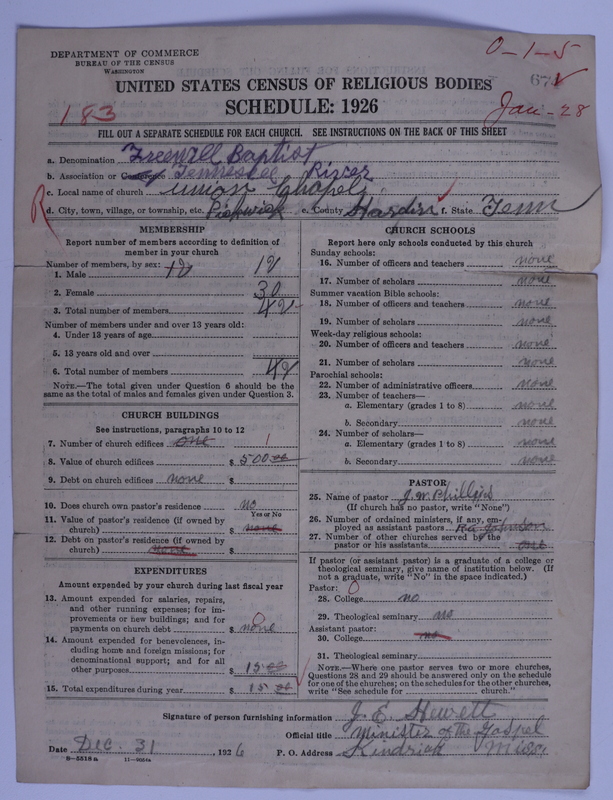 DEPARTMENT OF COMMERCE
BUREAU OF THE CENSUS
WASHINGTON
0-1-5
UNITED STATES CENSUS OF RELIGIOUS BODIES
SCHEDULE: 1926
183
Jan-28
FILL OUT A SEPARATE SCHEDULE FOR EACH CHURCH. SEE INSTRUCTIONS ON THE BACK OF THIS SHEET
a. Denomination Freewill Baptist
b. Association or Conference Tennessee River
c. Local name of church Union Chapel
R
d. City, town, village, or township, etc. Pickwick e. County Hardin f. State Tenn
MEMBERSHIP
Report number of members according to definition of
member in your church
Number of members, by sex: 12
1. Male 12
2. Female 30
3. Total number of members 42
Number of members under and over 13 years old:
4. Under 13 years of age
5. 13 years old and over
6. Total number of members 42
NOTE.—The total given under Question 6 should be
the same as the total of males and females given under Question 3.
CHURCH BUILDINGS
See instructions, paragraphs 10 to 12
7. Number of church edifices one 1
8. Value of church edifices $ 500.00
9. Debt on church edifices none $
10. Does church own pastor's residence no
Yes or No
11. Value of pastor's residence (if owned by
church) $ none
12. Debt on pastor's residence (if owned by
church) none $
EXPENDITURES
Amount expended by your church during last fiscal year
13. Amount expended for salaries, repairs,
and other running expenses; for im-
provements or new buildings; and for
payments on church debt $ none
0
14. Amount expended for benevolences, in-
cluding home and foreign missions; for
denominational support; and for all
other purposes $ 15.00
15. Total expenditures during year $ 15.00
CHURCH SCHOOLS
Report here only schools conducted by this church
Sunday schools:
16. Number of officers and teachers none
17. Number of scholars none
Summer vacation Bible schools:
18. Number of officers and teachers none
19. Number of scholars none
Week-day religious schools:
20. Number of officers and teachers none
21. Number of scholars none
Parochial schools:
22. Number of administrative officers none
23. Number of teachers—
a. Elementary (grades 1 to 8) none
b. Secondary none
24. Number of scholars—
a. Elementary (grades 1 to 8) none
b. Secondary none
PASTOR
25. Name of pastor J. W. Phillips
(If church has no pastor, write "None")
26. Number of ordained ministers, if any, em-
ployed as assistant pastors Johnson
27. Number of other churches served by the
pastor or his assistants one
If pastor (or assistant pastor) is a graduate of a college or
theological seminary, give name of institution below. (If
not a graduate, write "No" in the space indicated.)
Pastor: 0
28. College no
29. Theological seminary no
Assistant pastor:
30. College no
31. Theological seminary
NOTE.—Where one pastor serves two or more churches,
Questions 28 and 29 should be answered only on the schedule
for one of the churches; on the schedules for the other churches,
write "See schedule for church."
Signature of person furnishing information J. E. Hewett
Official title Minister of the Gospel
Date Dec. 31, 1926 P. O. Address Kendrick Miss.
8-5518a 11-9564a